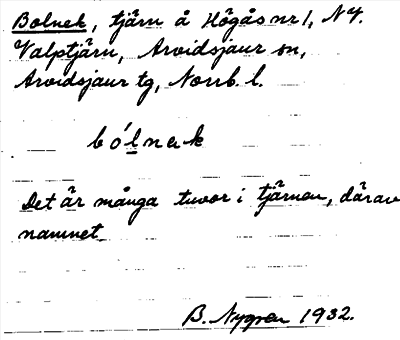 Bolnek, tjärn å Högås nr 1, N V.
Valptjärn, Arvidsjaur sn,
Arvidsjaur tg, Norrb. l.
bólnek
Det är många tuvor i tjärnen, därav
namnet.
B. Nygren 1932.